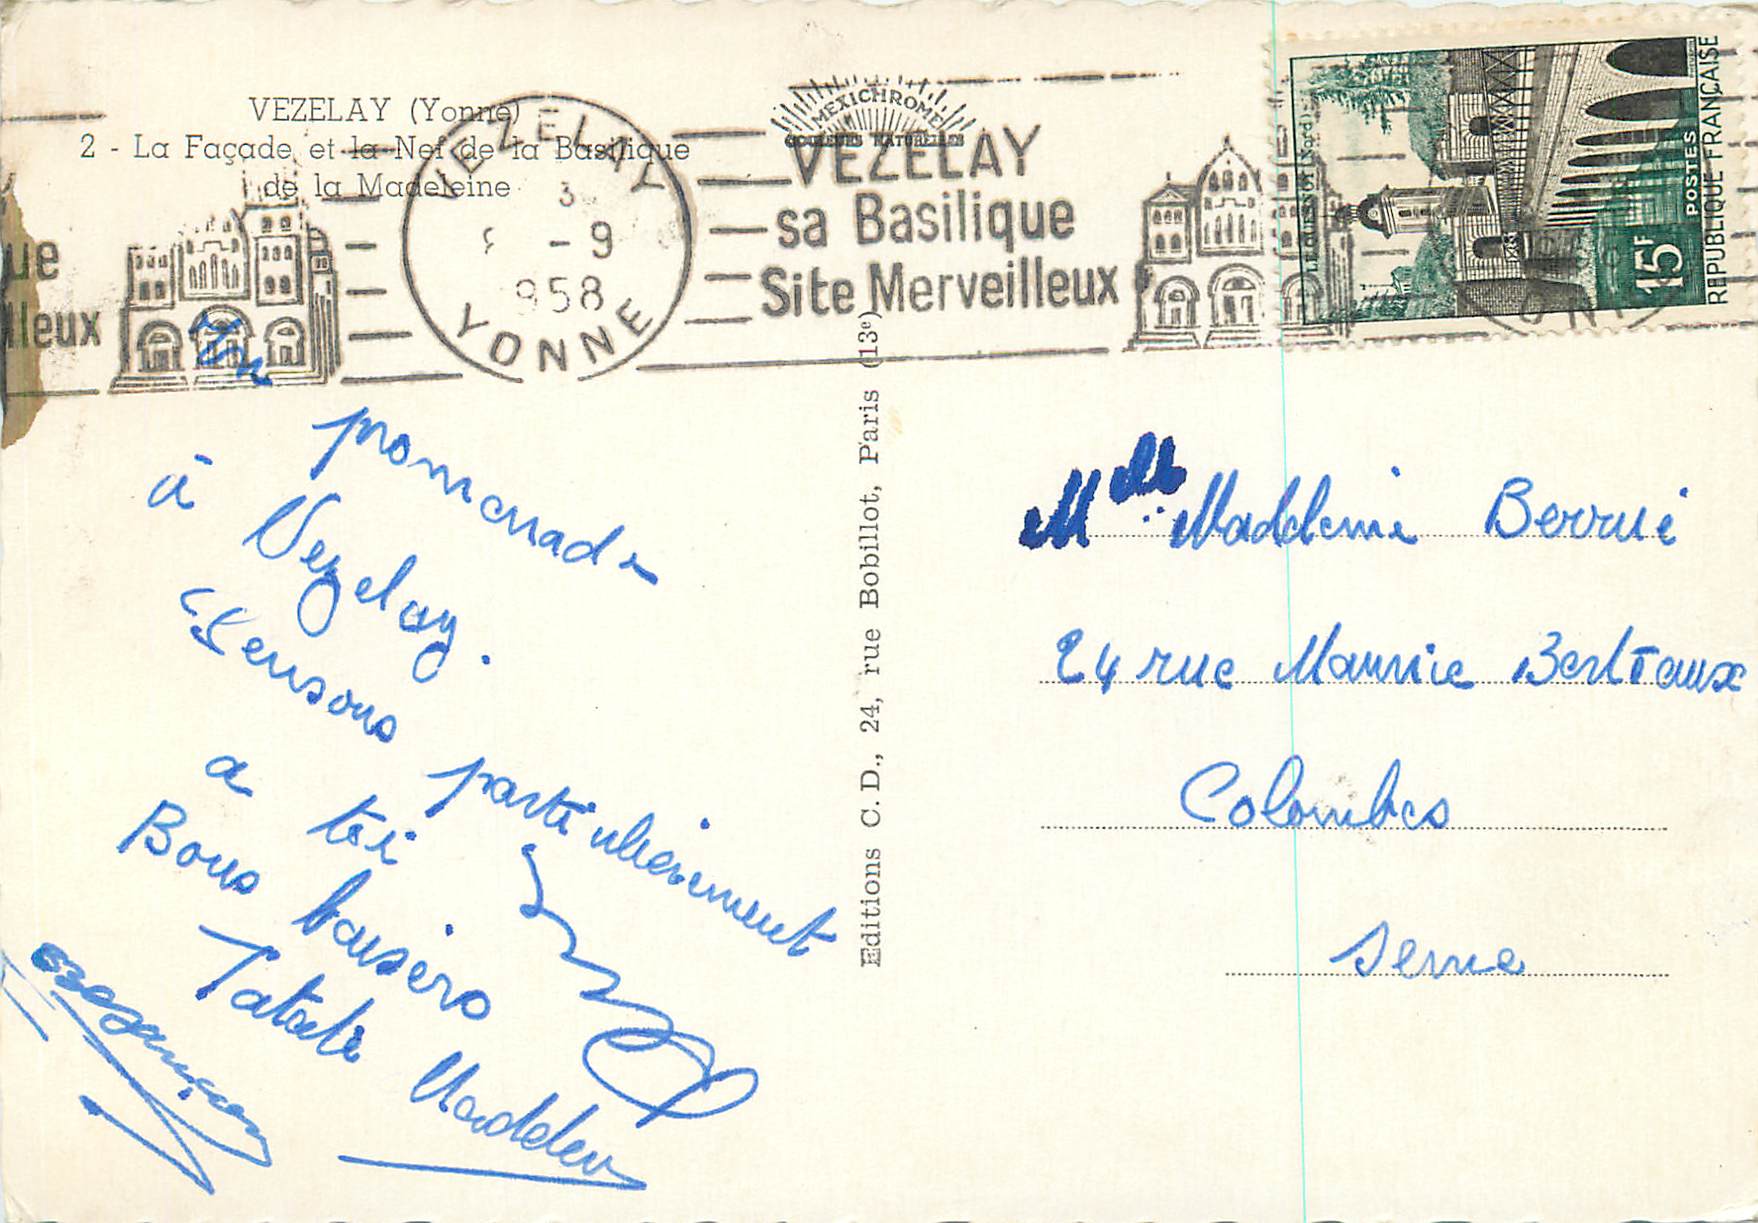 VEZELAY (Yonne)
2 - La Façade et la Nef de la Basilique
de la Madeleine
VEZELAY
3
-9
958
YONNE
MEXICHROME
COULEURS NATURELLES
VEZELAY
sa Basilique
Site Merveilleux
ue
lleux
LE QUESNOY (Nord)
15F
POSTES
REPUBLIQUE FRANÇAISE
En
promenade
à Vezelay.
Pensons particulièrement
a toi
Bons baisers
Tatate Madelen
Besançon
Editions C. D., 24, rue Bobillot, Paris (13e)
Melle Madeleine Berrué
24 rue Maurice Berteaux
Colombes
Seine